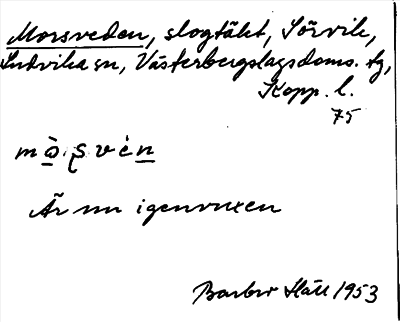 Morsveden, slogtäkt, Sörvik,
Ludvika sn, Västerbergslagsdoms. tg,
Kopp. l.
75
mò̠ʂvèn̠
Är nu igenvuxen
Barbro Häll 1953